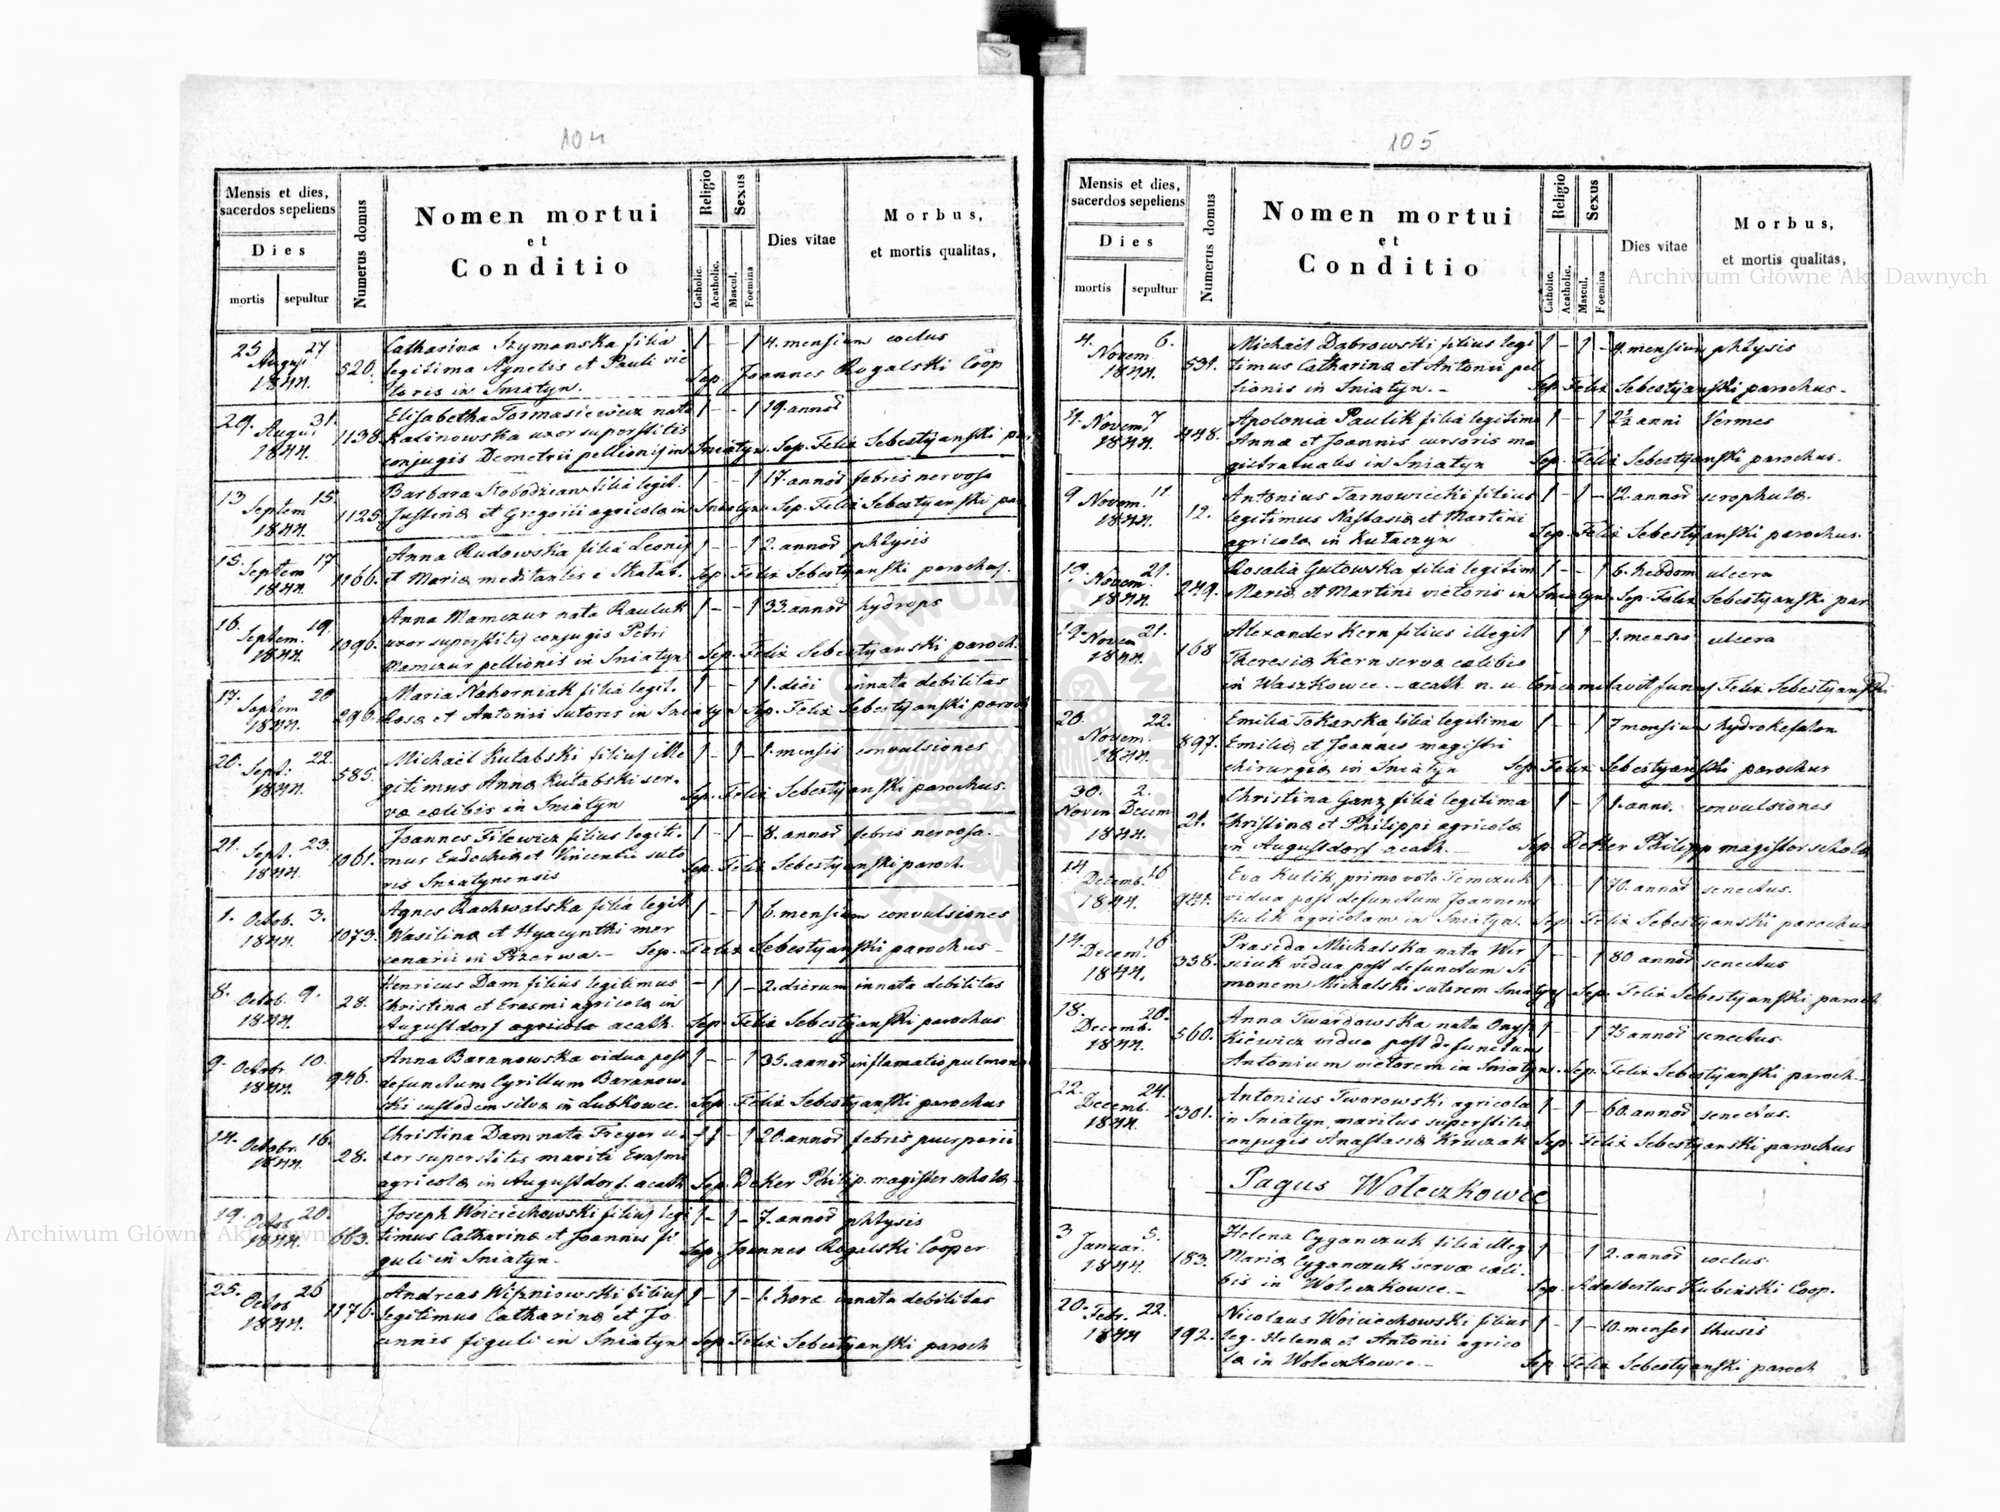 104
Mensis et dies,
sacerdos sepeliens
Dies
mortis
sepultur
Numerus domus
Nomen mortui
et
Conditio
Religio
Catholic.
Acatholic.
Sexus
Mascul.
Foemina
Dies vitae
Morbus,
et mortis qualitas,
25 27 Catharina Szymanska filia 1 - - 1 4. mensium coctus
August 520. legitima Agnetis et Pauli vie
1844. toris in Sniatyn. Sep. Joannes Rogalski Coop
29. 31. Elisabetha Tormasiewicz nata 1 - - 1 19. annor
Augus 1138. Kalinowska uxor superstitis
1844. conjugis Demetrii pellionis in Sniatyn. Sep. Felix Sebestyanski par
13 15. Barbara Slobodzian filia legit. 1 - - 1 17. annor febris nervosa
Septem 1125. Justinae et Gregorii agricolae in Sniatyn. Sep. Felix Sebestyanski par
1844.
15. 17 Anna Rudowska filia Leonis 1 - - 1 2. annor phtysis
Septem 1166. et Mariae meditantis e Skalat. Sep. Felix Sebestyanski parochus.
1844.
16. 19. Anna Mamczur nata Pauluk 1 - - 1 33. annor hydrops
Septem. 1090. uxor superstitis conjugis Petri
1844. Mamczur pellionis in Sniatyn Sep. Felix Sebestyanski paroch.
17. 20 Maria Nahorniak filia legit. 1 - - 1 1. diei innata debilitas
Septem 296. Rosae et Antonii sutoris in Sniatyn Sep. Felix Sebestyanski paroch
1844.
20. 22. Michael Kulabski filius ille 1 - 1 - 1. mensis convulsiones
Sept: 585. gitimus Anna Kulabski ser.
1844. vae caelibis in Sniatyn Sep. Felix Sebestyanski parochus.
21. 23. Joannes Filewicz filius legiti. 1 - 1 - 8. annor febris nervosa.
Sept. 1061. mus Eudochiae et Vincentii suto
1844. ris Sniatynensis Sep. Felix Sebestyanski paroch.
1. Octob. 3. Agnes Rachwalska filia legit 1 - - 1 6. mensium convulsiones
1844. 1073. Wasilinae et Hyacynthi mer
cenarii in Przerwa. - Sep. Felix Sebestyanski parochus -
8. Octob. 9. Henricus Dam filius legitimus - 1 1 - 2. dierum innata debilitas
1844. 28. Christinae et Erasmi agricolae in
Augustdorf agricola acath. Sep. Felix Sebestyanski parochus
9. Octobr. 10. Anna Baranowska vidua post 1 - - 1 35. annor inflamatio pulmonu
1844. 946. defunctum Cyrillum Baranow.
ski custodem silvae in Lubkowce. Sep. Felix Sebestyanski parochus
14. Octobr. 16. Christina Dam nata Freyer u. - 1 - 1 20. annor febris puerperii
1844. 28. xor superstitis mariti Erasmi
agricolae in Augustdorf. acath Sep. Deker Philip. magister scholae
19. Octob 20. Joseph Woiciechowski filius legi 1 - 1 - 7. annor phtysis
1844. 663. timus Catharinae et Joannis fi
guli in Sniatyn. Sep. Joannes Rogalski Cooper
25. Octob 26 Andreas Wiszniowski filius 1 - 1 - 1. hora innata debilitas
1844. 1176. legitimus Catharinae et Jo
annis figuli in Sniatyn Sep. Felix Sebestyanski paroch
105
Mensis et dies,
sacerdos sepeliens
Dies
mortis
sepultur
Numerus domus
Nomen mortui
et
Conditio
Religio
Catholic.
Acatholic.
Sexus
Mascul.
Foemina
Dies vitae
Morbus,
et mortis qualitas,
4. 6. Michael Dąbrowski filius legi 1 - 1 - 4. mensium phtysis
Novem. 531. timus Catharinae et Antonii pel
1844. lionis in Sniatyn. - Sep. Felix Sebestyanski parochus -
4. Novem. 7 Apolonia Paulik filia legitima 1 - - 1 2½ anni Vermes
1844. 448. Annae et Joannis cursoris ma
gistratualis in Sniatyn Sep. Felix Sebestyanski parochus.
9 Novem. 11 Antonius Tarnowiecki filius 1 - 1 - 12. annor scrophulae.
1844. 12. legitimus Nastasiae et Martini
agricolae in Kułaczyn Sep. Felix Sebestyanski parochus.
19. Novem. 21. Rosalia Gutowska filia legitim 1 - - 1 6. hebdom ulcera
1844. 249. Mariae et Martini vietoris in Sniatyn Sep. Felix Sebestyanski par
19. Novem 21. Alexander Kern filius illegit 1 1 - 1. mensis ulcera
1844. 168 Theresiae Kern servae caelibis
in Waszkowce. - acath. Felix Sebestyanski
20. Novem. 22. Emilia Tokarska filia legitima 1 - - 1 7 mensium hydrokefalon
1844. 897. Emiliae et Joannis magistri
chirurgiae in Sniatyn Sep. Felix Sebestyanski parochus
30. 2. Christina Ganz filia legitima 1 - 1 1. anni. convulsiones
Novem Decem 21. Christinae et Philippi agricolae
1844. in Augustdorf acath Sep Dekker Philipp magister scholae
14 Decemb. 16 Eva Kulik, primo voto Semczuk 1 - - 1 70. annor senectus.
1844. 941. vidua post defunctum Joannem
Kulik agricolam in Sniatyn. Sep. Felix Sebestyanski parochus
14. Decem. 16 Praxeda Michalska nata Wir 1 - - 1 80 annor senectus
1844. 338. sciuk vidua post defunctum Si
monem Michalski sutorem Sniatyn Sep. Felix Sebestyanski paroch
18. Decemb. 20. Anna Twardowska nata Onys 1 - - 1 75 annor senectus.
1844. 560. kiewicz vidua post defunctum
Antonium vietorem in Sniatyn. Sep. Felix Sebestyanski paroch.
22. Decemb. 24. Antonius Tworowski agricola 1 - 1 - 60. annor senectus.
1844. 1301. in Sniatyn, maritus superstitis
conjugis Anastasia Kruczak Sep. Felix Sebestyanski parochus
Pagus Wołczkowce
3 Januar. 5. Helena Cyganczuk filia illeg 1 - - 1 2. annor coctus.
1844. 183. Mariae Cyganczuk servae caeli.
bis in Wołczkowce. - Sep. Adalbertus Kubinski Coop.
20. Febr. 22. Nicolaus Woiciechowski filius 1 - 1 - 10. menses tussis
1844 192. leg. Helenae et Antonii agrico
lae in Wołczkowce. - Sep. Felix Sebestyanski paroch
Archiwum Główne Akt Dawnych
Archiwum Główne Akt Dawnych